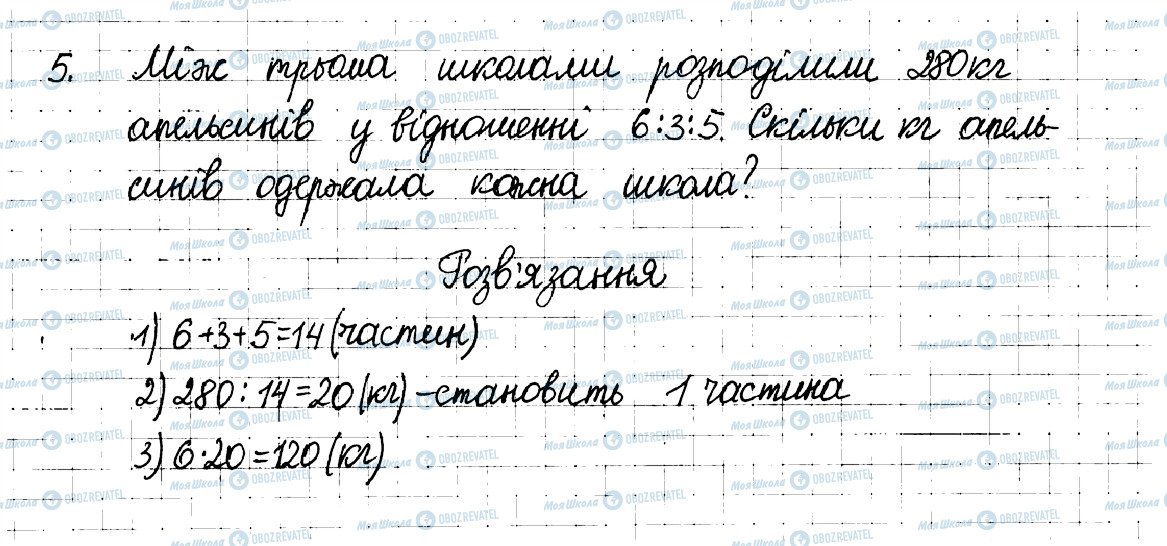 5. Між трьома школами розподілили 280кг
апельсинів у відношенні 6:3:5. Скільки кг апель-
синів одержала кожна школа?
Розв'язання
1) 6+3+5=14 (частин)
2) 280:14=20 (кг) – становить 1 частина
3) 6·20=120 (кг)